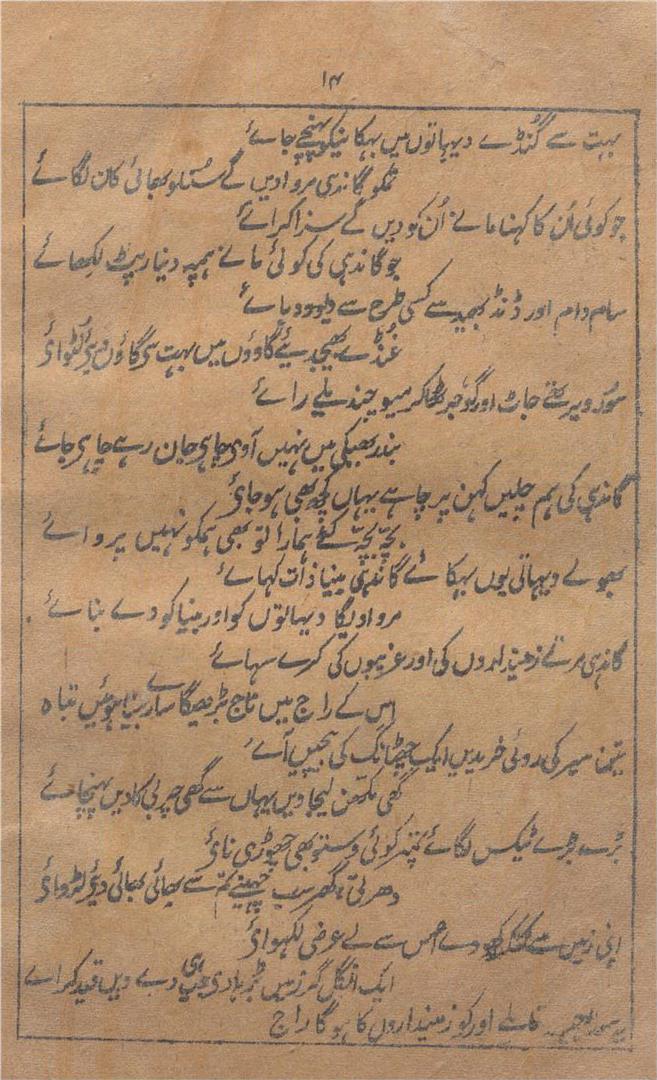 ۱۴
بہت سے گُنڈے دیہاتوں میں بہکانیکو پہنچے جائے
تمکو گاندہی مروادیں گے سُنلو بھائی کان لگائے
جو کوئی اُن کا کہنا مانے اُن کو دیں گے سزا کرائے
جو گاندہی کی کوئی مانے ہمپہ دینا رپٹ لکھائے
سام دام اور ڈنڈ بھید سے کسی طرح سے دبائے
غُنڈے بھیجدیئے گاووں میں بہت سی گاؤں دیئے لُٹوائے
جاٹ اور گوجر ٹھاکر میو چند ملے رائے
بندر بھبکی میں نہیں آوی چاہی جان رہے چاہی جائے
گاندہی کی ہم چلیں کہن پر چاہے یہاں کچھ بھی ہو جائے
بچہ بچہ کٹے ہمارا تو بھی ہمکو نہیں پروائے
بھولے دیہاتی یوں بہکائے گاندہی بنیا ذات کہائے
مروادیگا دیہاتوں کو اور بنیا کو دے بنائے
گاندہی مرتے زمینداروں کی اور غریبوں کی کرے سہائے
اس کے راج میں ناج بڑھیگا سارے بنیا ہوئیں تباہ
تین سیر کی روئی خریدیں ایک چھٹانک کی بیچیں آئے
گھی مکھن لیجاویں یہاں سے گھی چربی کا دیں پہنچائے
بُرے بُرے ٹیکس لگائے ہمپہ کوئی وستو بھی چھوڑی نائے
دھرتی گھر سب چھینے تم سے بھائی بھائی دیئے لڑوائے
اپنی زمین سے دے جس سے لے عرضی لکہوائے
ایک انگل گر زمیں دبے دیں قید کرائے
اور کو زمینداروں کا ہوگا راج